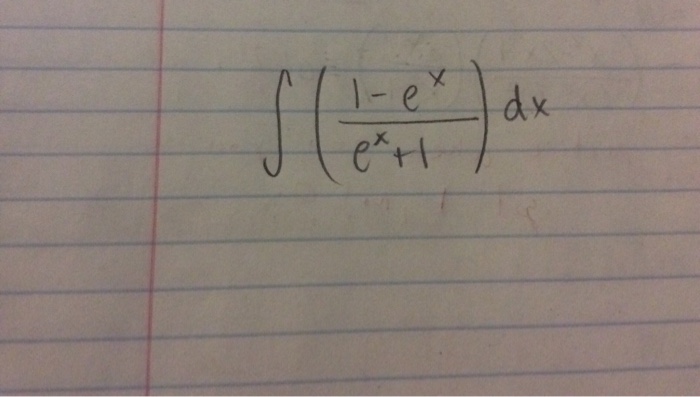 ∫ ( (1 - e^x) / (e^x + 1) ) dx